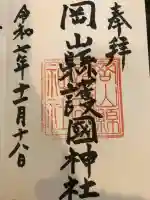 奉拝
岡山縣護國神社
令和七年十一月十八日